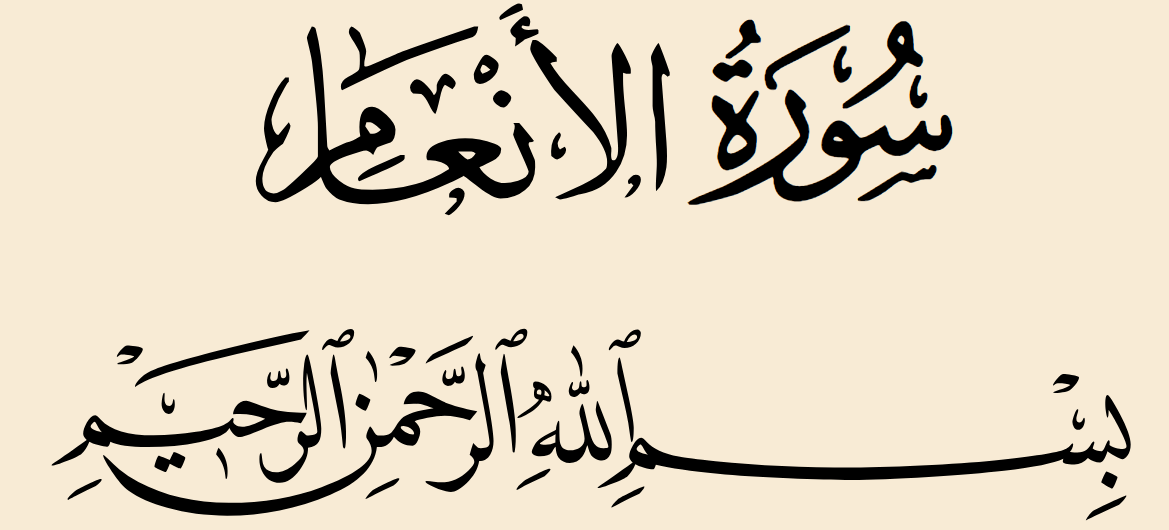 سُورَةُ الأَنْعَامِ
بِسْمِ ٱللَّهِ ٱلرَّحْمَٰنِ ٱلرَّحِيمِ